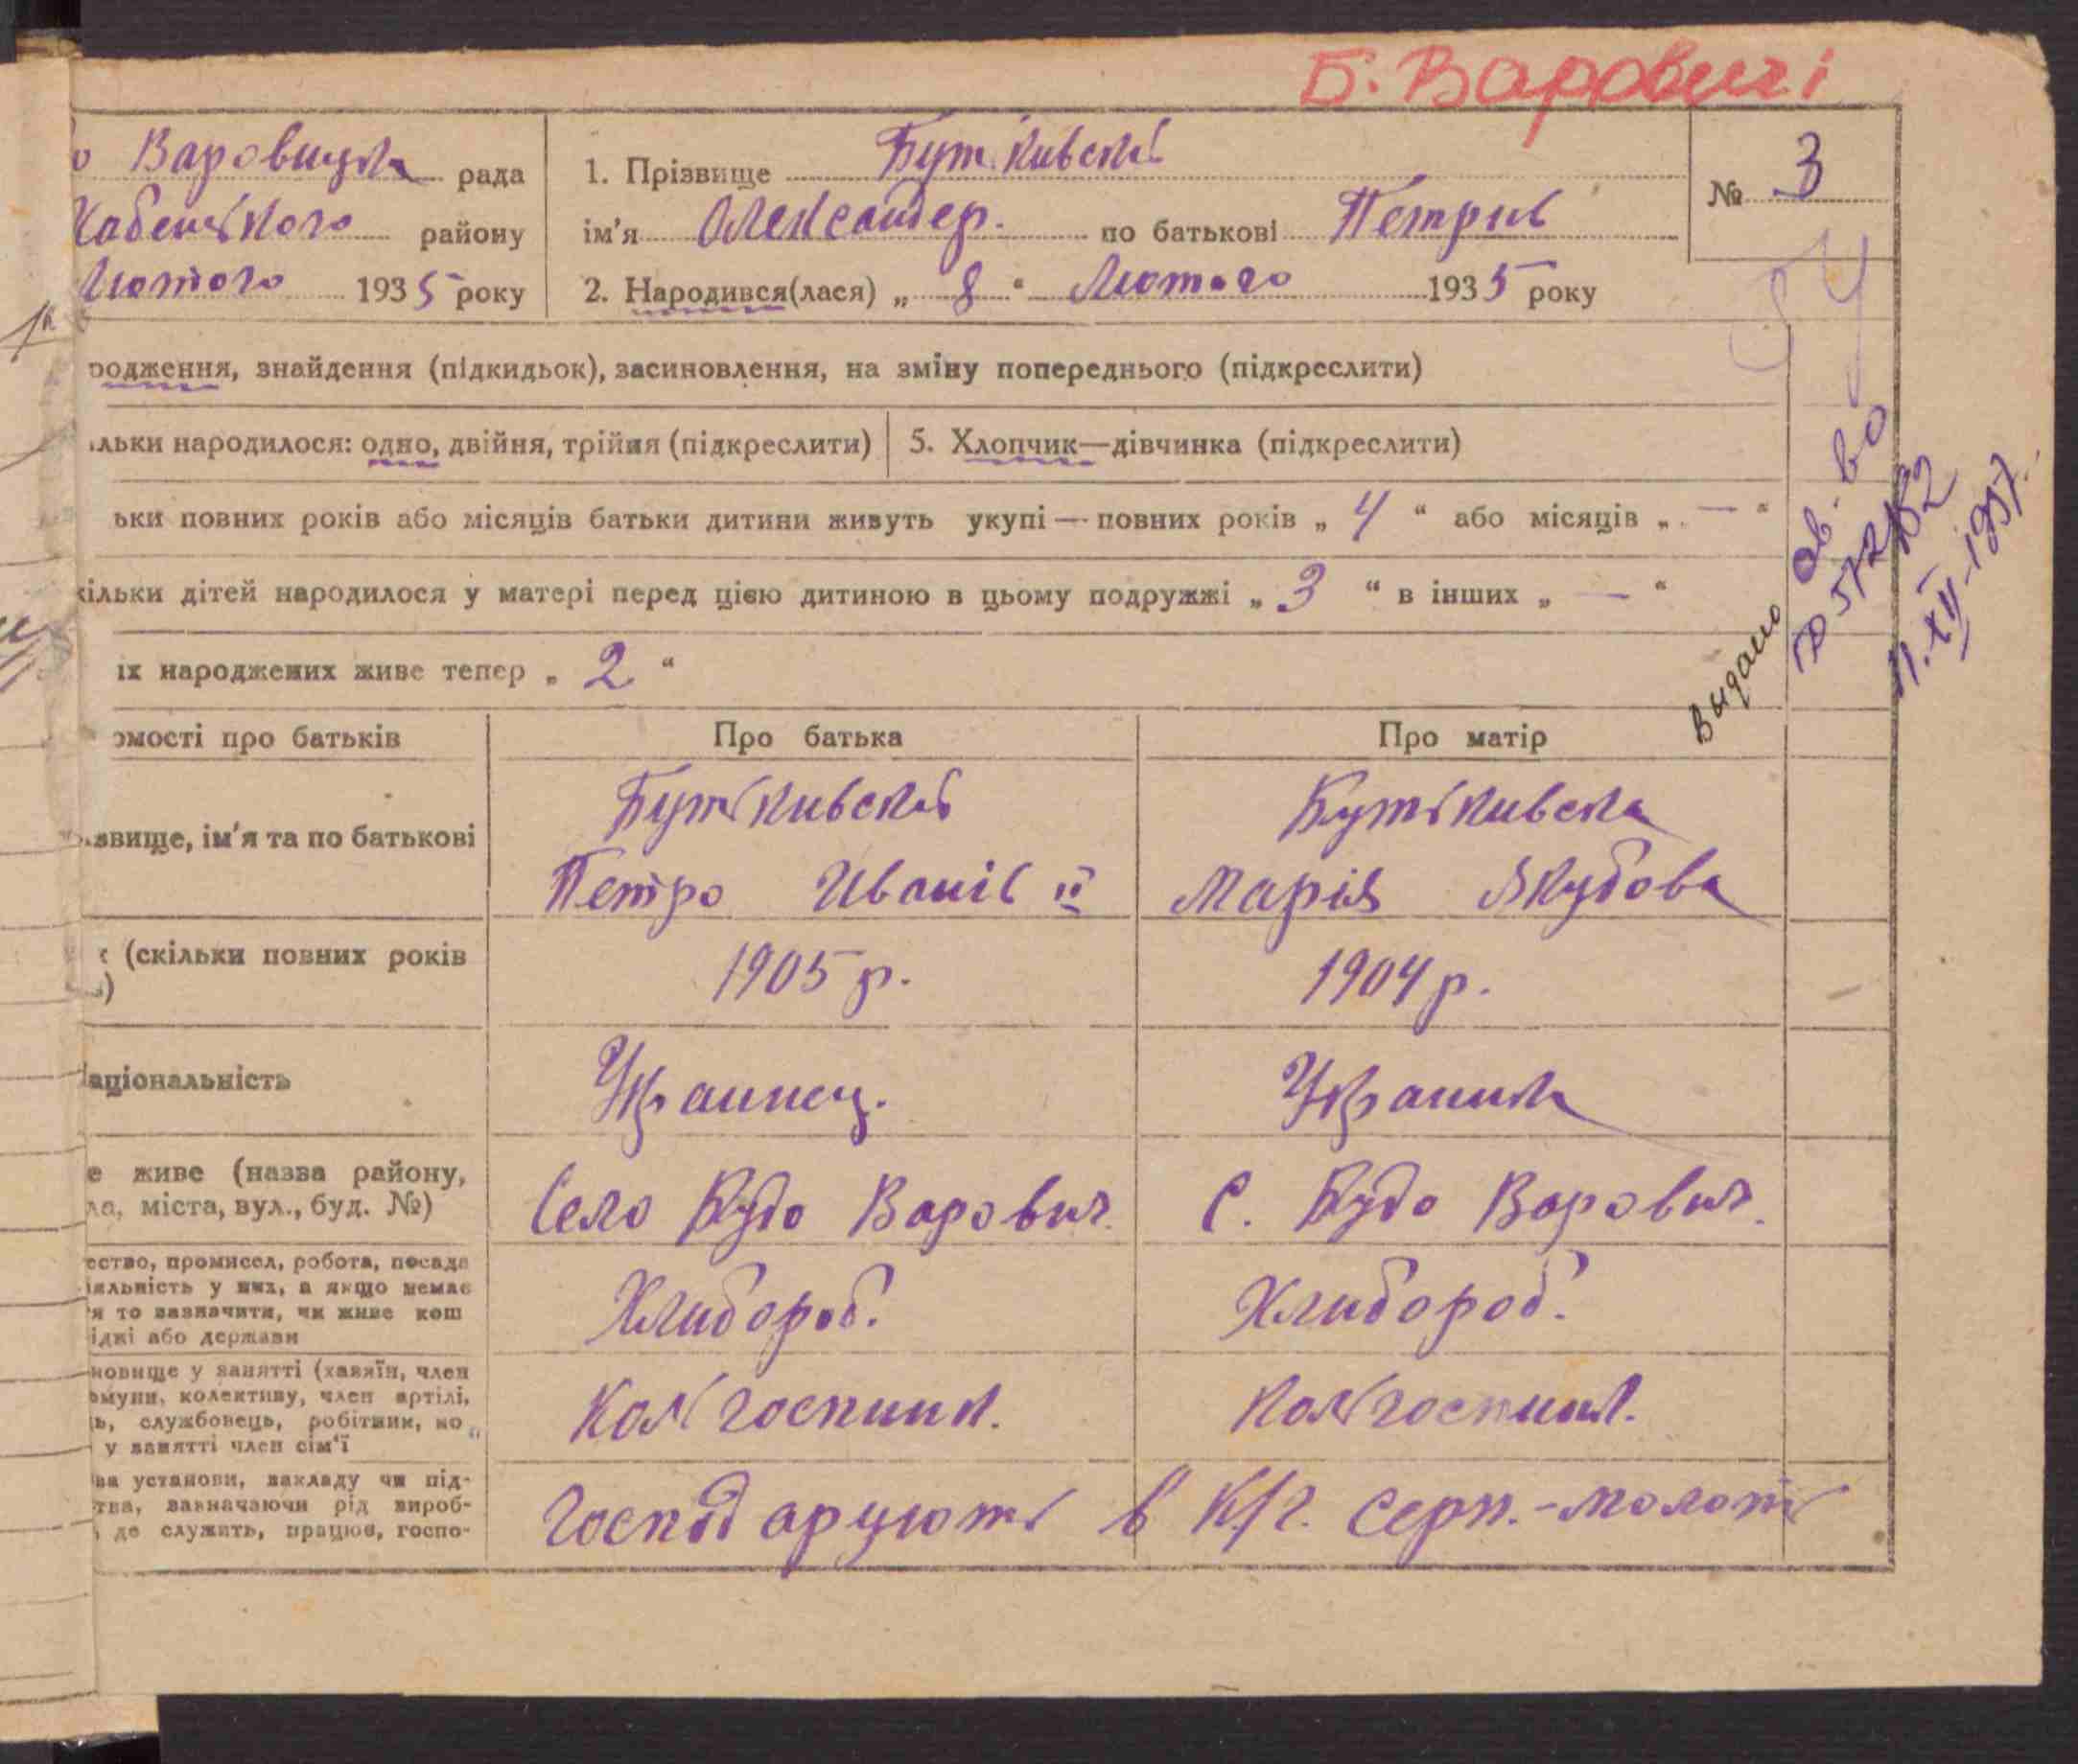 Б. Варовичі
о Варовицка рада
Хабенського району
Лютого 1935 року
1. Прізвище Бутьківскі
ім'я Олександер. по батькові Петрив
2. Народився(лася) „ 8 “ Лютого 1935 року
№ 3
родження, знайдення (підкидьок), засиновлення, на зміну попереднього (підкреслити)
ільки народилося: одно, двійня, трійня (підкреслити)
5. Хлопчик—дівчинка (підкреслити)
ьки повних років або місяців батьки дитини живуть укупі — повних років „ 4 “ або місяців „ — “
кільки дітей народилося у матері перед цією дитиною в цьому подружжі „ 3 “ в інших „ — “
іх народжених живе тепер „ 2 “
Видано
св. во
11.XII-1957.
омості про батьків
Про батька
Про матір
ізвище, ім'я та по батькові
Бутьківскі
Петро Иванів II
Бутьківска
Марія Якубова
к (скільки повних років
)
1905 р.
1904 р.
Національність
Украинец.
Украинка
е живе (назва району,
ла, міста, вул., буд. №)
Село Будо Варович.
С. Будо Варович.
ество, промисел, робота, посада
іяльність у них, а якщо немає
я то зазначити, чи живе кош
ідні або держави
Хлибороб.
Хлибороб.
новище у занятті (хазяїн, член
омуни, колективу, член артілі,
ь, службовець, робітник, но
у занятті член сім'ї
Колгоспник.
Колгоспник.
ва установи, закладу чи під-
тва, зазначаючи рід вироб-
, де служить, працює, госпо-
Господарують в к/г. Серп.-молот